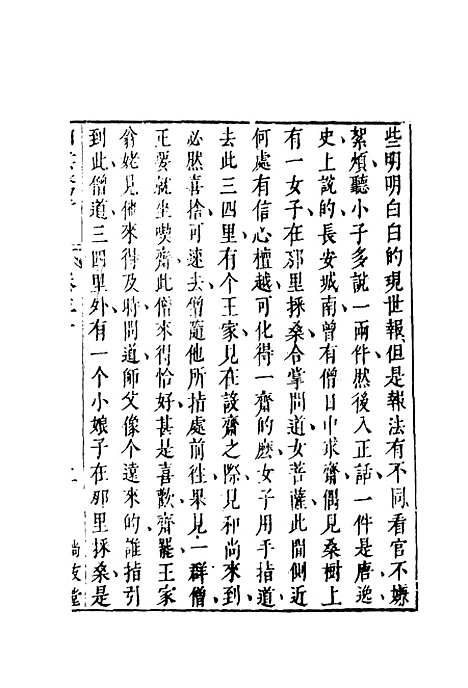 些明明白白的現世報但是報法有不同看官不嫌
絮煩聽小子多說一兩件然後入正話一件是唐逸
史上說的長安城南曾有僧日中求齋偶見桑樹上
有一女子在那里採桑合掌問道女菩薩此間側近
何處有信心檀越可化得一齋的麽女子用手指道
去此三四里有个王家見在設齋之際見和尚來到
必然喜捨可速去僧隨他所指處前徃果見一群僧
正要就坐喫齋此僧來得恰好甚是喜歡齋罷王家
翁姥見他來得及時問道師父像个遠來的誰指引
到此僧道三四里外有一个小娘子在那里採桑是
尚友堂